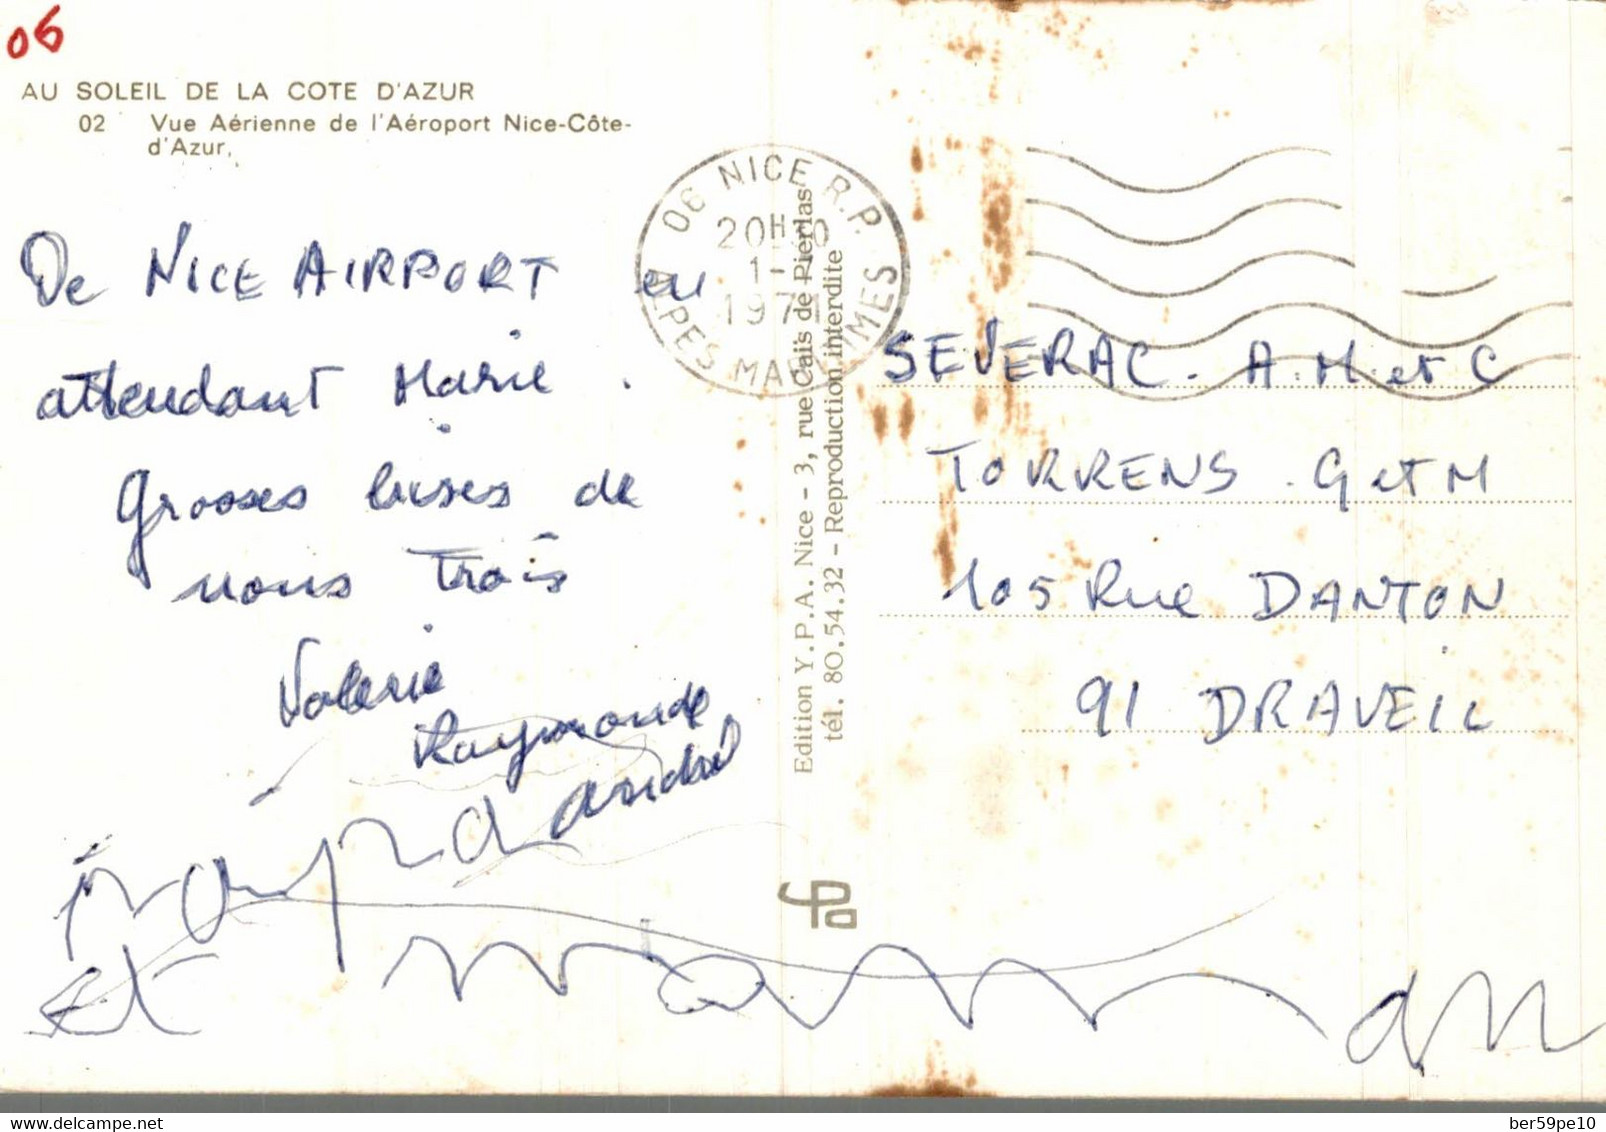 06
AU SOLEIL DE LA COTE D'AZUR
02 Vue Aérienne de l'Aéroport Nice-Côte-
d'Azur.
De NICE AIRPORT en
attendant Marie.
Grosses bises de
nous Trois
Valerie
Raymonde
André
papa
et maman
06 NICE R.P.
20H
1-
1971
ALPES MARITIMES
Edition Y.P.A. Nice - 3, rue Cais de Pierlas
tél. 80.54.32 - Reproduction interdite
ypa
SEVERAC. A.M et C
TORRENS. G et M
105 Rue DANTON
91 DRAVEIL
delcampe.net
ber59pe10